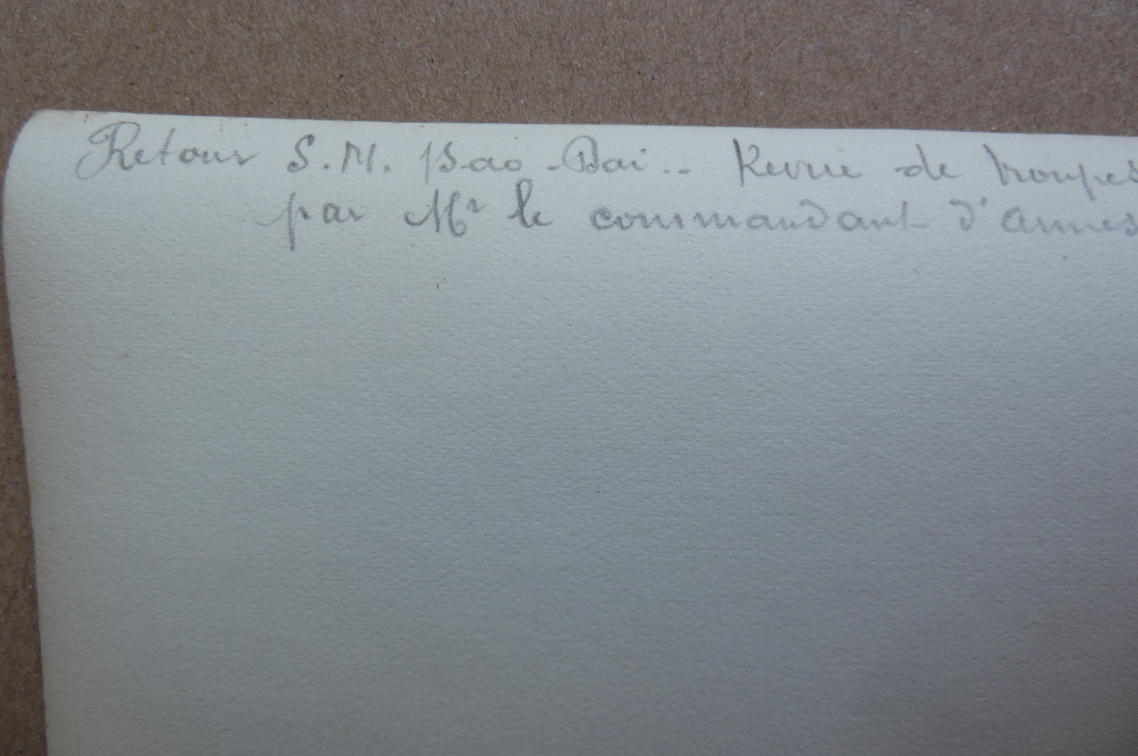 Retour S.M. Bao-Dai.. Revue de troupes
par Mr le commandant d'armes